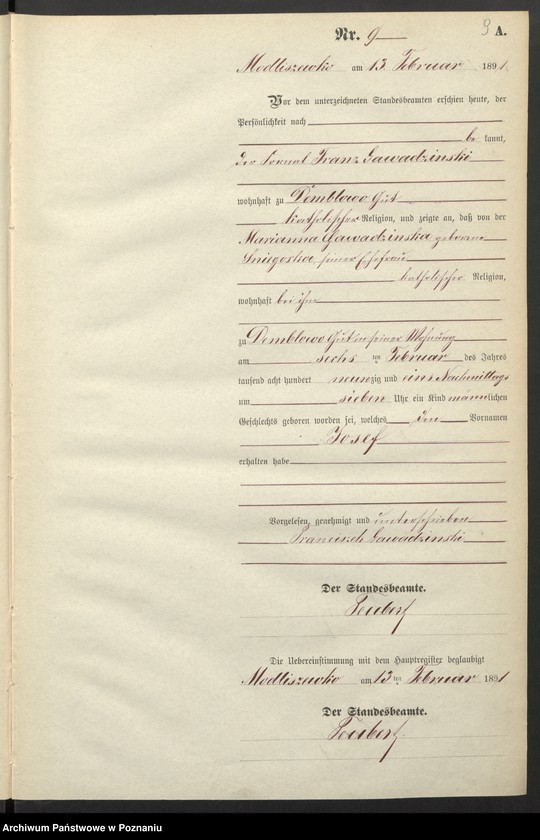 Nr. 9 9 A.
Modliszewko am 13 Februar 1891
Vor dem unterzeichneten Standesbeamten erschien heute, der
Persönlichkeit nach
be kannt,
der Fornal Franz Gawadzinski
wohnhaft zu Demblowo Gut
katholischer Religion, und zeigte an, daß von der
Marianna Gawadzinska geborene
seiner Ehefrau
katholischer Religion,
wohnhaft bei ihm
zu Demblowo Gut in seiner Wohnung
am sechs ten Februar des Jahres
tausend acht hundert neunzig und eins Nachmittags
um sieben Uhr ein Kind männlichen
Geschlechts geboren worden sei, welches den Vornamen
Josef
erhalten habe
Vorgelesen, genehmigt und unterschrieben
Franciszek Gawadzinski
Der Standesbeamte.
Teubert
Die Uebereinstimmung mit dem Hauptregister beglaubigt
Modliszewko am 13 ten Februar 1891
Der Standesbeamte.
Teubert
Archiwum Państwowe w Poznaniu